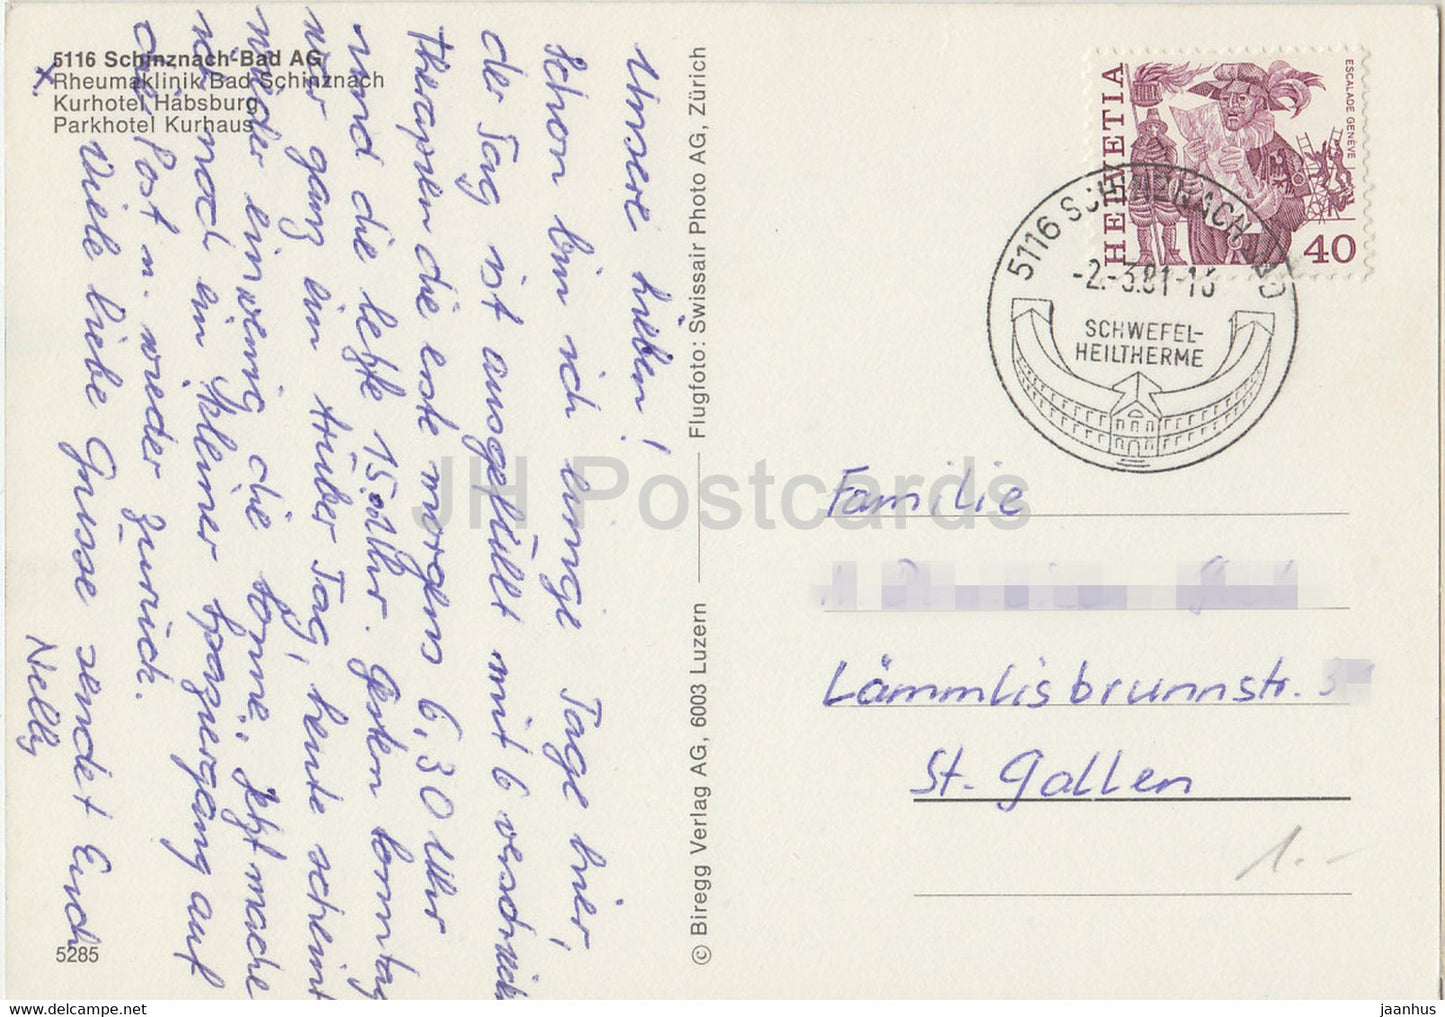 5116 Schinznach-Bad AG
Rheumaklinik Bad Schinznach
Kurhotel Habsburg
Parkhotel Kurhaus
Unsere lieben!
Schon bin ich einige Tage hier,
der Tag ist ausgefüllt mit 6 verschied.
Therapien die erste morgens 6,30 Uhr
und die letzte 15.Uhr. Gestern Sonntag
war ganz ein trüber Tag, heute scheint
wieder ein wenig die Sonne. Jetzt mache
ich noch ein kleiner Spaziergang auf
die Post u. wieder zurück.
Viele liebe Grüsse sendet Euch
Nelly
5285
© Biregg Verlag AG, 6003 Luzern
Flugfoto: Swissair Photo AG, Zürich
HELVETIA
ESCALADE GENÈVE
40
5116 SCHINZNACH BAD
-2.-3.81-16
SCHWEFEL-
HEILTHERME
Familie
Lämmlisbrunnstr.
St. Gallen
1.-
JH Postcards
https://www.jhpostcards.com/
jaanhus